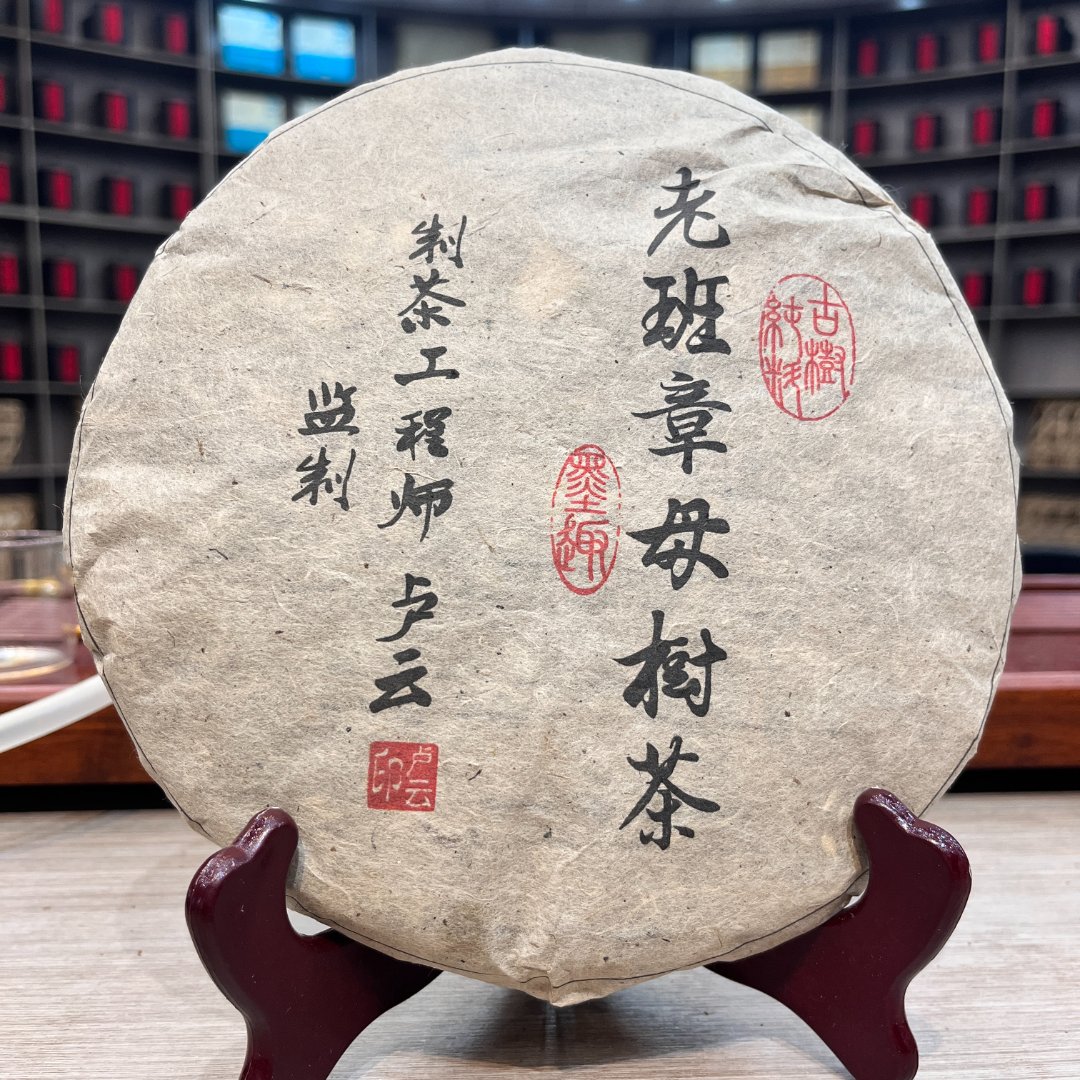 古樹
純料
老班章母樹茶
墨趣
制茶工程师 卢云
监制
卢云
印